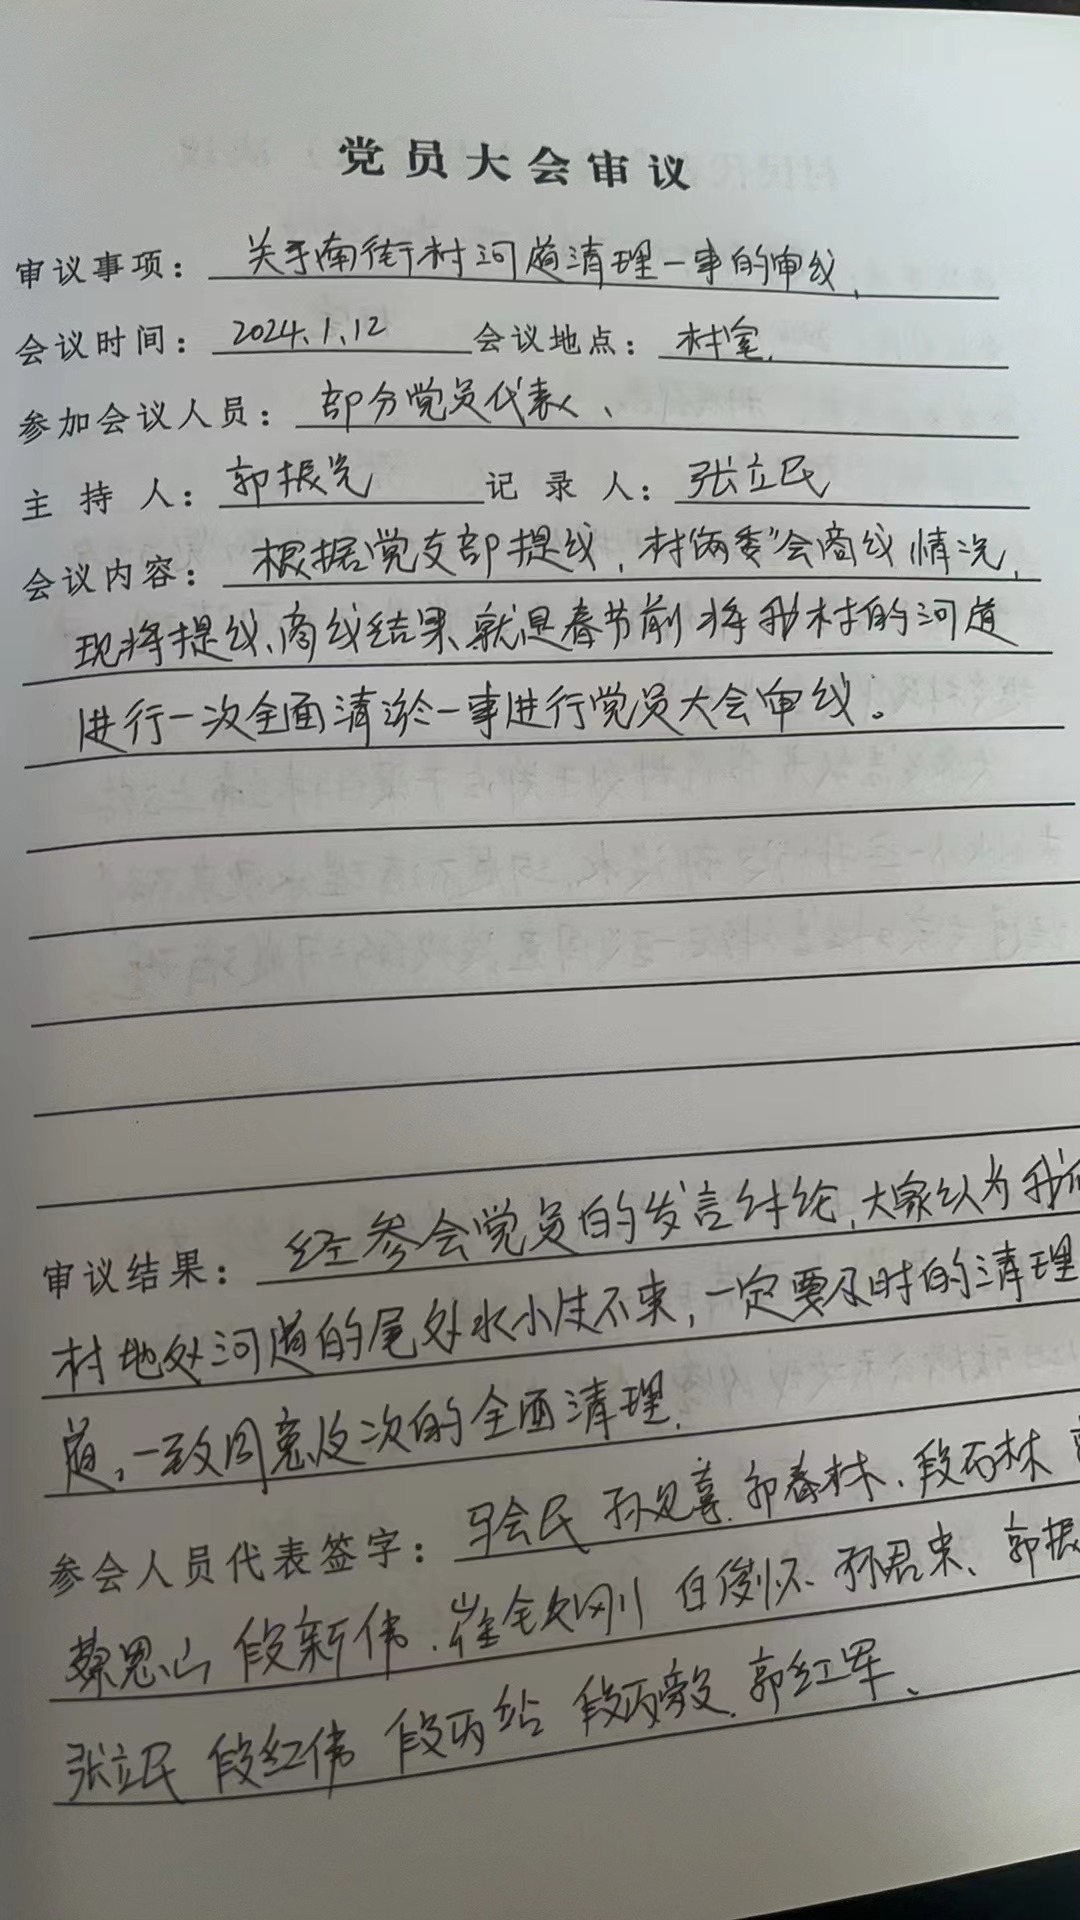 党员大会审议
审议事项：关于南街村河道清理一事的审议、
会议时间：2024.1.12 会议地点：村室、
参加会议人员：部分党员代表、
主持人：郭振光 记录人：张立民
会议内容：根据党支部提议，村“两委”会商议情况，
现将提议、商议结果、就是春节前将我村的河道
进行一次全面清淤一事进行党员大会审议。
审议结果：经参会党员的发言讨论，大家认为我们
村地处河道的尾处水小过不来，一定要及时的清理
道，一致同意及次的全面清理、
参会人员代表签字：马会民 孙见尊、郭春林、段丙林
蔡恩山 段新伟、崔全刚 白俊怀 孙君来、郭振
张立民 段红伟 段丙站 段丙毅、郭红军、